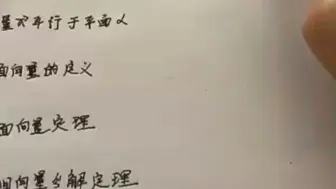 量不平行于平面α
面向量的定义
面向量定理
间向量分解定理